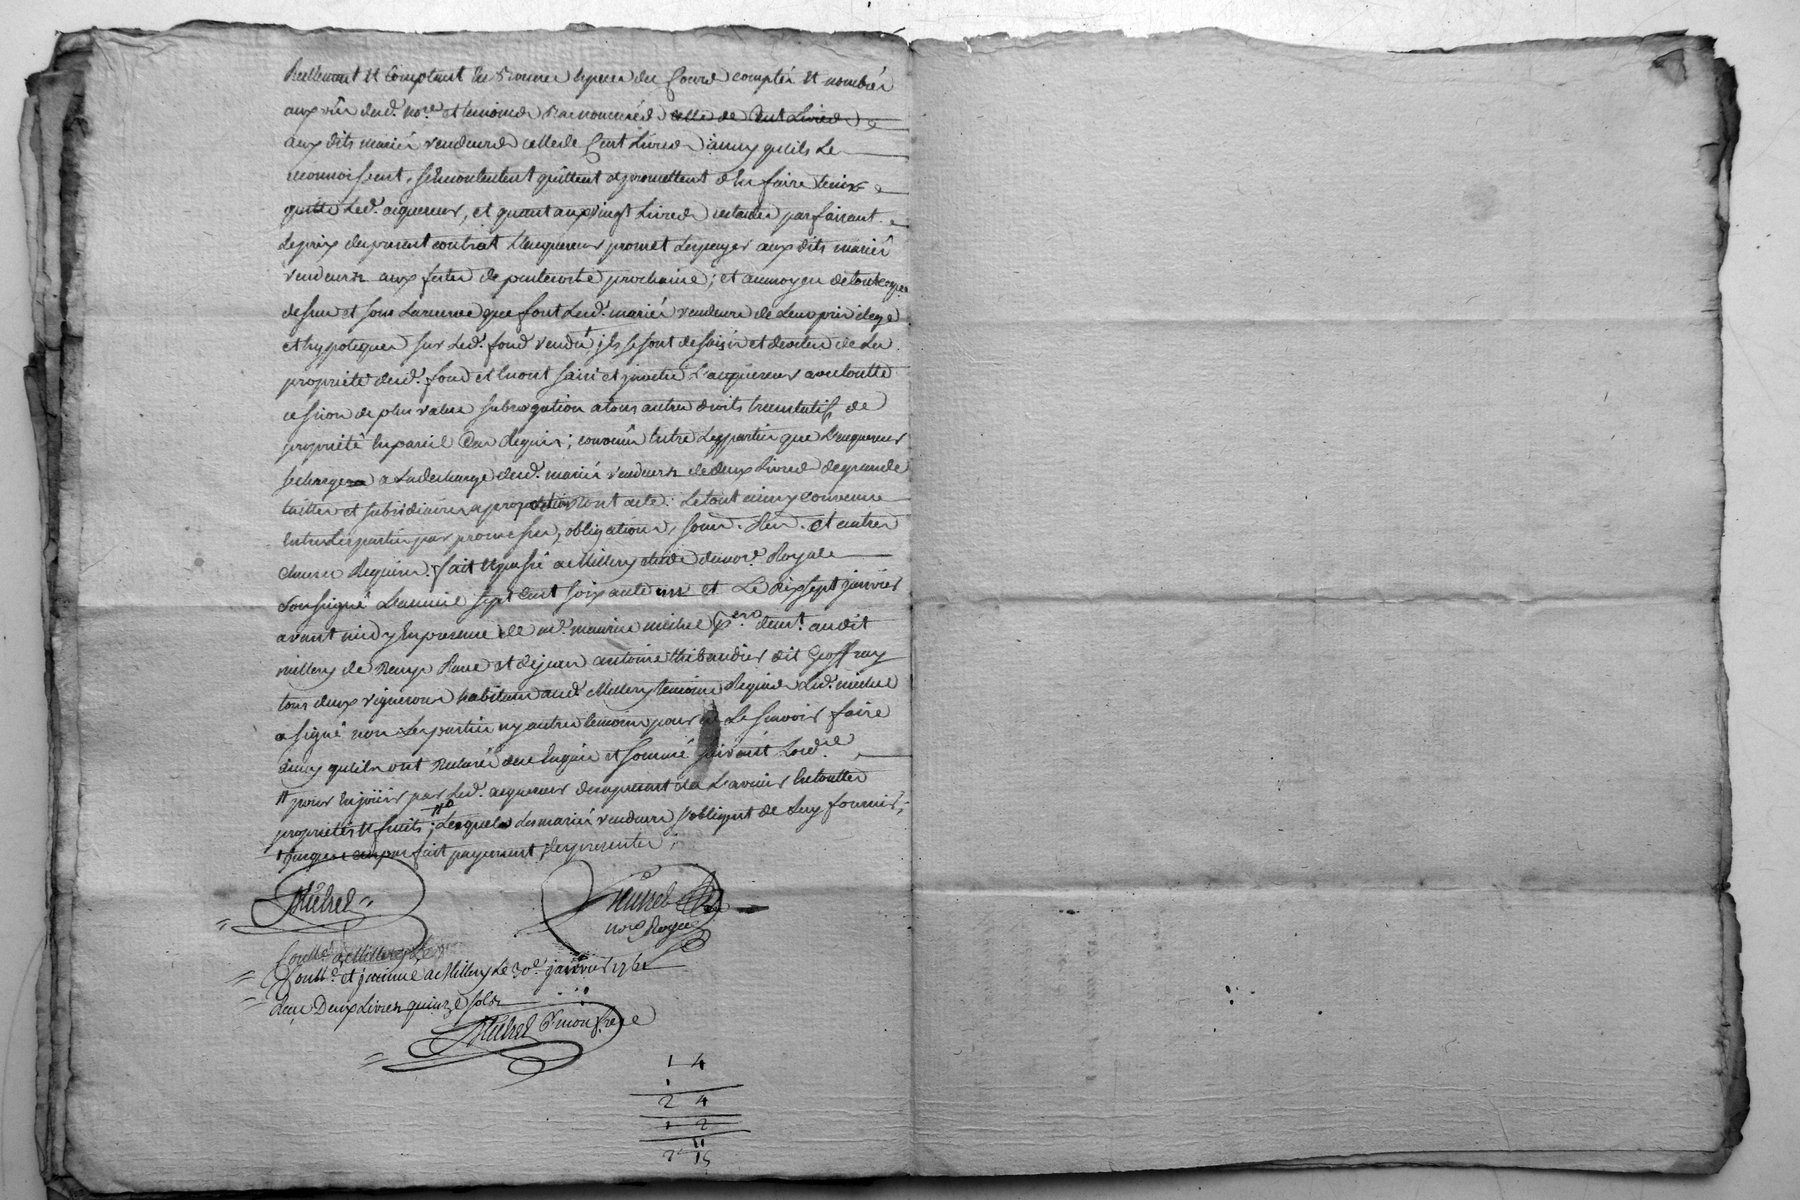 Reellement et comptant en bonnes especes de cours comptés et nombrés
aux vûe dud. nore. et temoins
aux dits mariés vendeurs celle de Cent Livres ainsy qu'ils le
reconnoissent, s'en contentent quittent et promettent d'en faire tenir
quitte led. acquereur, et quant aux vingt Livres restantes parfaisant
le prix du present contrat l'acquereur promet les payer aux dits mariés
vendeurs aux fetes de pentecoste prochaine; et au moyen de tout ce que
dessus et sous la reserve que font lesd. mariés vendeurs de leur privilege
et hypoteques sur led. fond vendu, jls se sont desaisis et devetus de la
proprieté dud. fond et en ont saisi et jnvetu l'acquereur avec toutte
cession de plus value subrogation a tous autres droits translatifs de
proprieté en pareil Cas requis; convenu entre les parties que l'acquereur
se chargera a la decharge desd. mariés vendeurs de deux Livres de grande
tailles et subsidiaires a proportion dont acte. Le tout ainsy convenu
entre les parties par promesses, obligations, soum. Ren. et autres
clauses Requises. fait et passé a Millery etude du nore. Royal
soussigné L'an mil sept cent soixante un et Le dix sept janvier
avant midy en presence de me. maurice michel demt. audit
millery et de jean antoine thibaudier dit Geoffray
tous deux vignerons habitans aud. Millery temoins Requis Led. michel
a signé non les parties ny autres temoins pour ne le scavoir faire
ainsy qu'ils ont declaré de ce enquis et sommé suivant Lord.ce
# pour en joüir par led. acquereur des a present et a l'avenir en toutte
proprietés et fruits; les mariés vendeurs s'obligent de luy fournir;
+ jusques au parfait payement des presentes;
Michel
Michel
nore Royal
Coollé a Millery Le
Conllé. et jnsinué a Millery Le 30e. janvier 1761
Recu Deux Livres quinze sols
Michel Pr mon frere
1 4
1
2 4
1 2
11
2 15